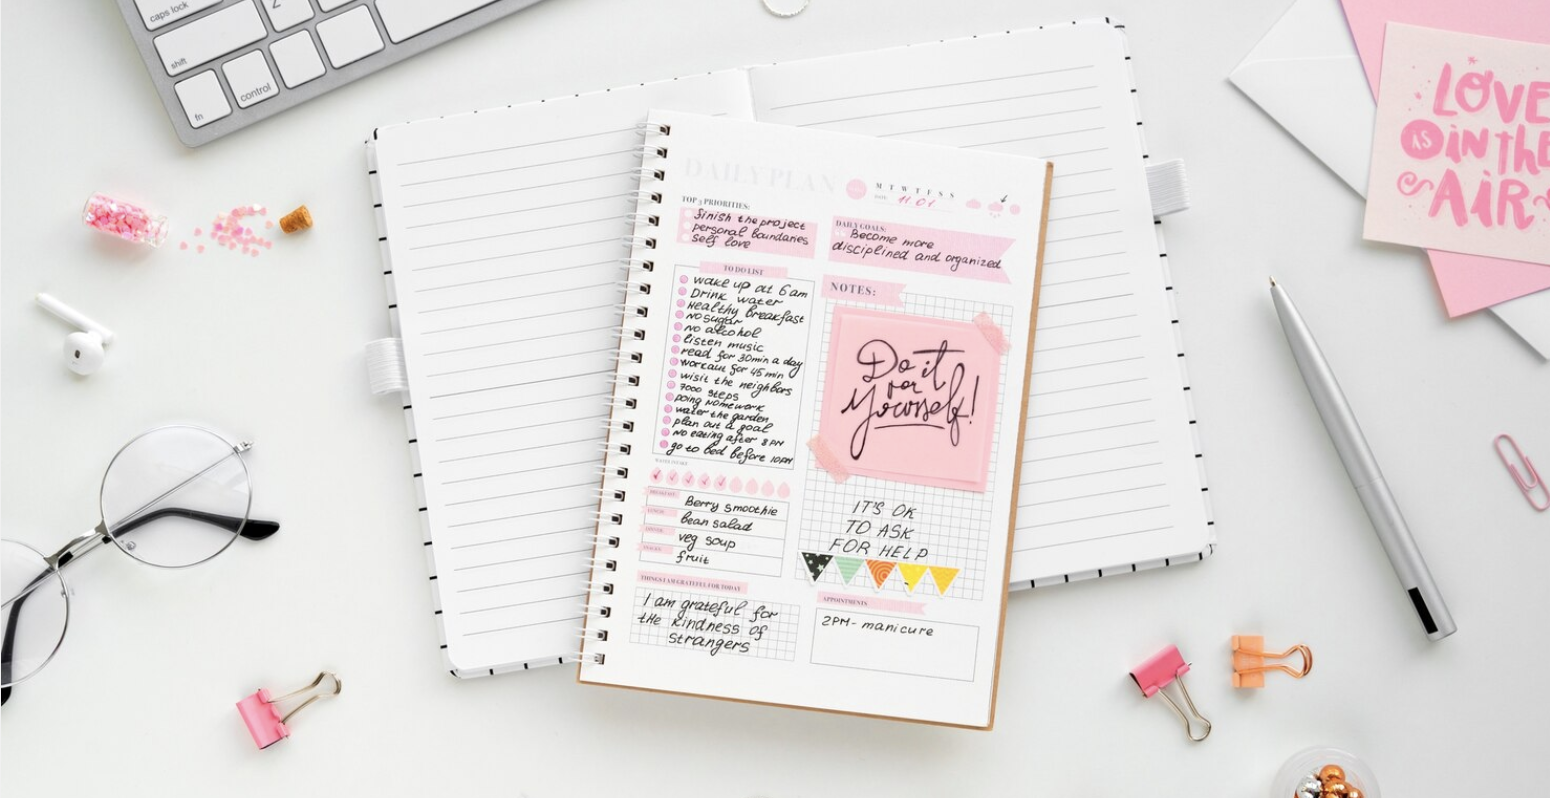 caps lock
Z
shift
fn
control
LOVE
IS IN THE
AIR
DAILY PLAN
M T W T F S S
DATE: 11.01
TOP 3 PRIORITIES:
finish the project
personal boundaries
self love
DAILY GOALS:
Become more
disciplined and organized
TO DO LIST
wake up at 6 am
Drink water
Healthy breakfast
no sugar
no alcohol
listen music
read for 30min a day
workout for 45 min
wisit the neighbors
7000 steps
doing homework
water the garden
plan out a goal
no eating after 8 PM
go to bed before 10PM
NOTES:
Do it
for
Yourself!
IT'S OK
TO ASK
FOR HELP
WATER INTAKE
BREAKFAST: Berry smoothie
LUNCH: bean salad
DINNER: veg soup
SNACKS: fruit
THINGS I AM GRATEFUL FOR TODAY
I am grateful for
the kindness of
strangers
APPOINTMENTS
2PM- manicure